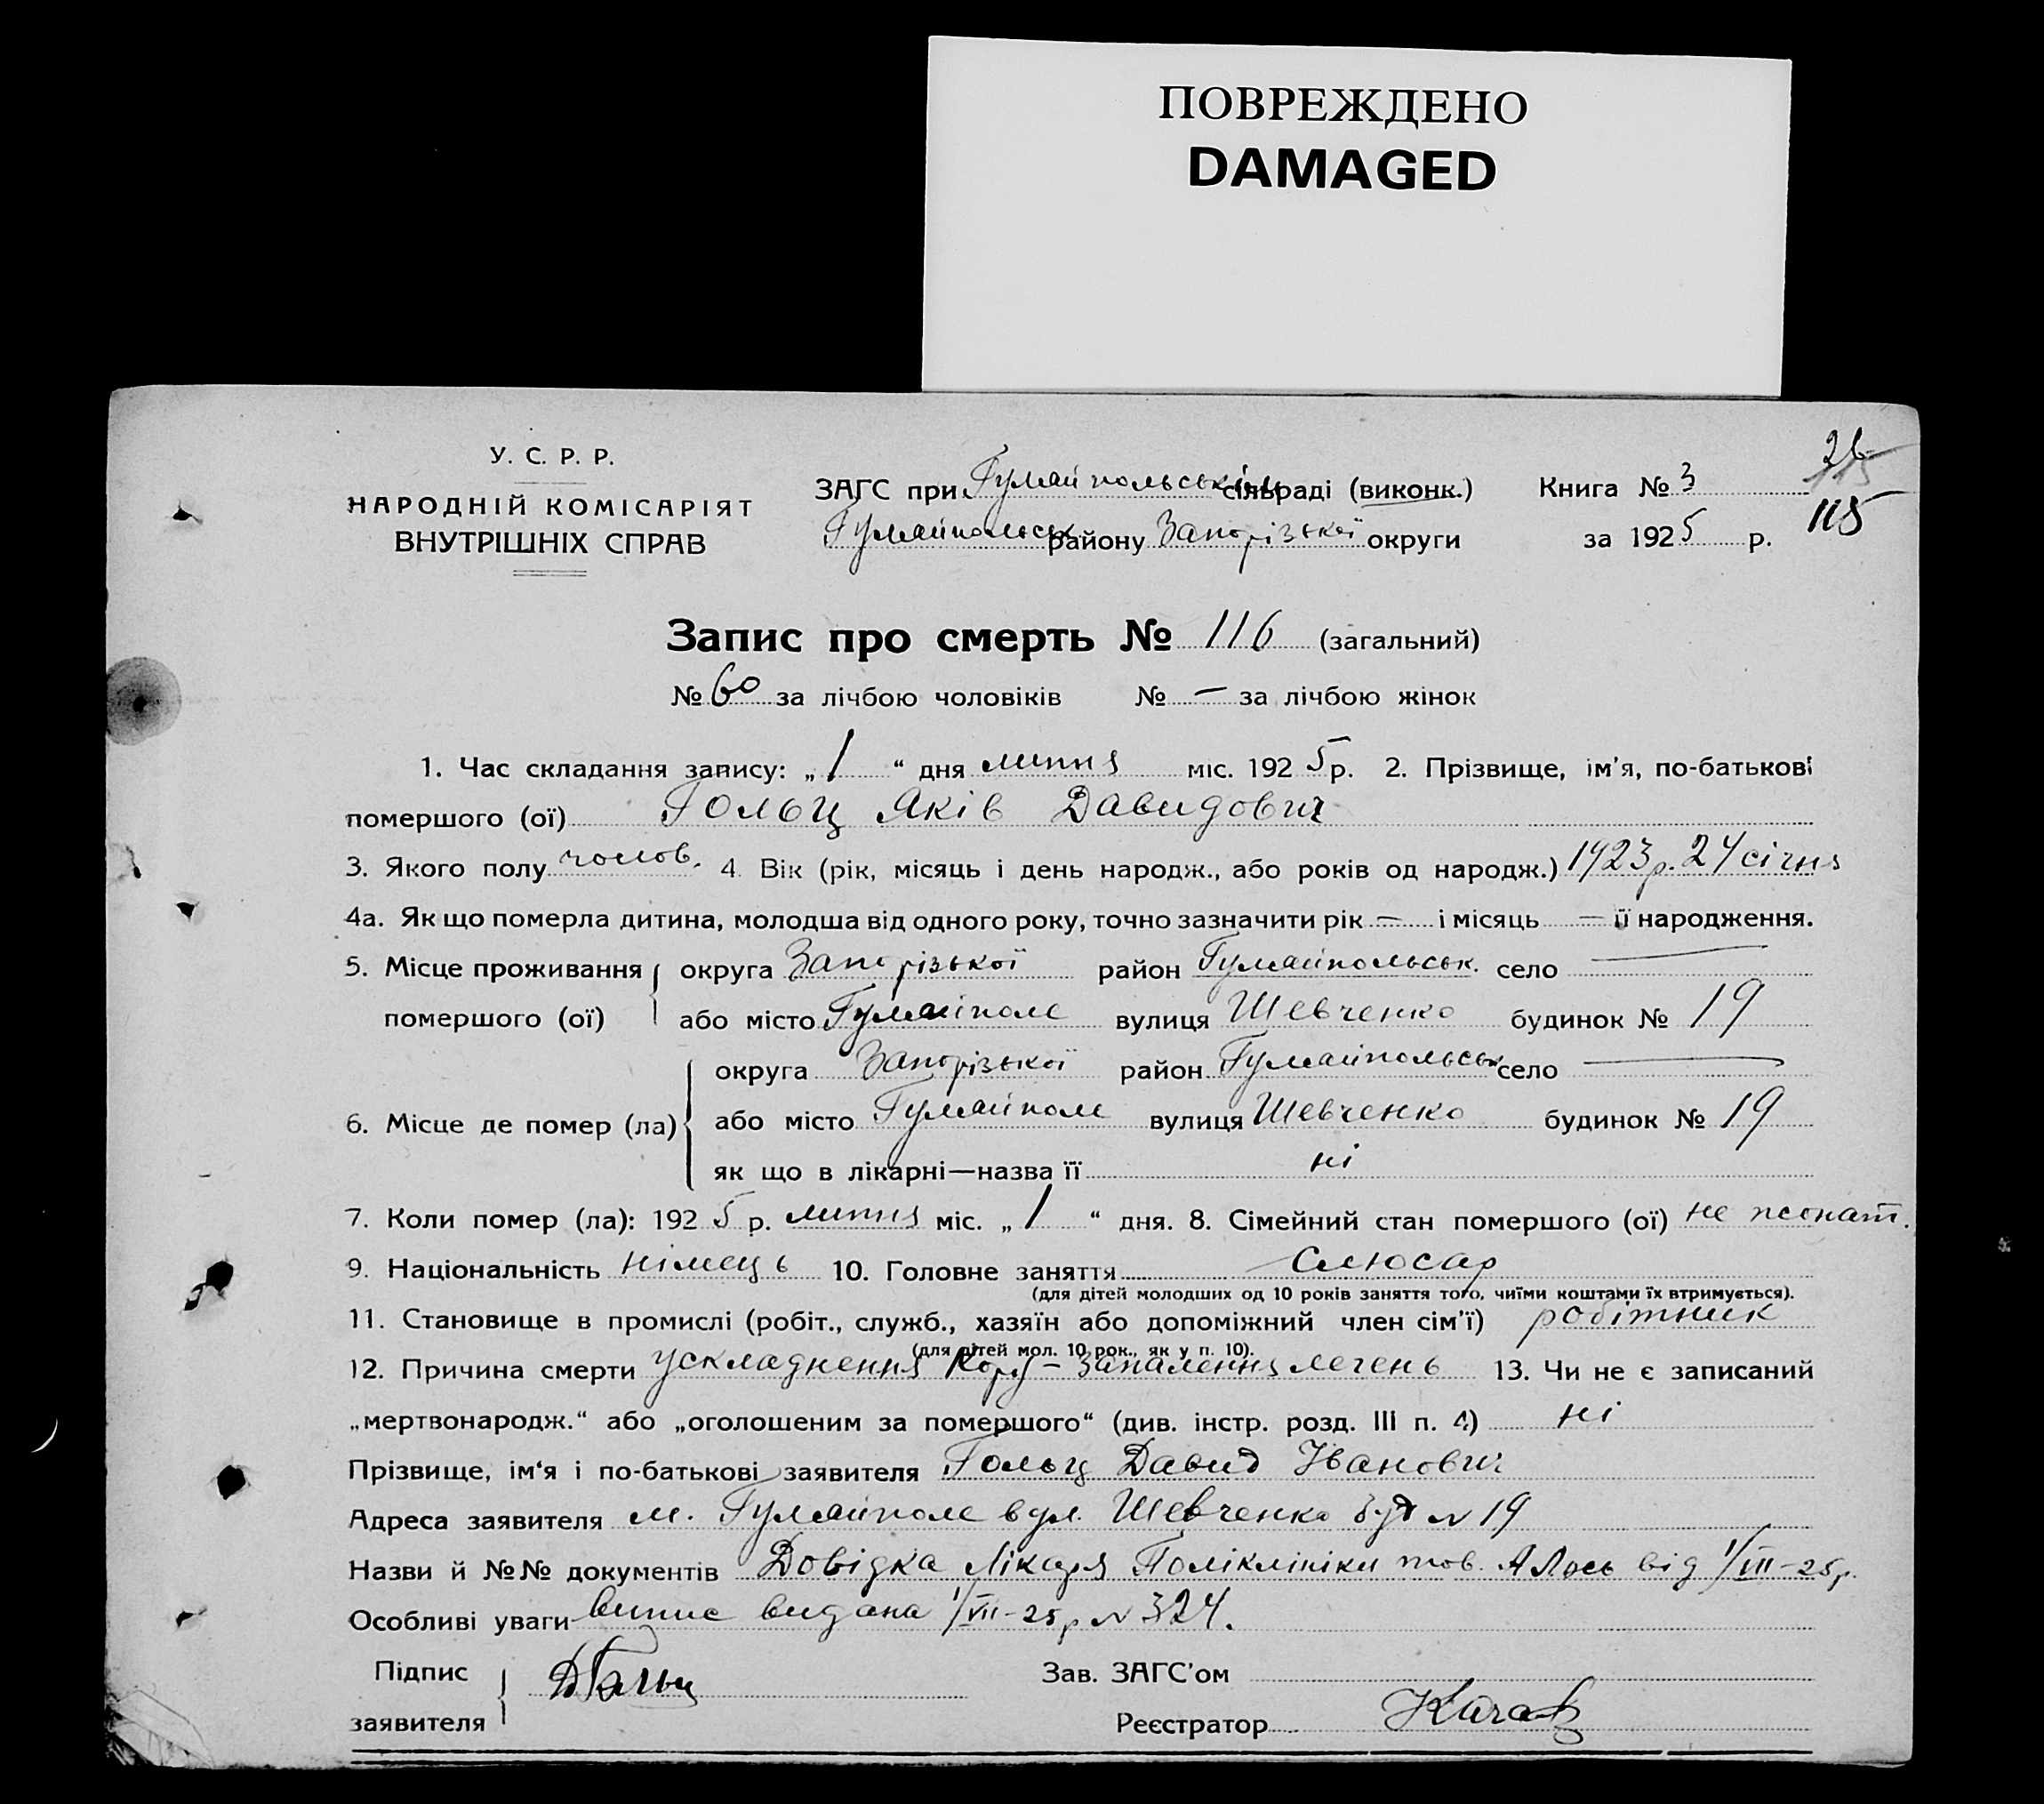 ПОВРЕЖДЕНО
DAMAGED
26
115
У. С. Р. Р.
НАРОДНІЙ КОМІСАРІЯТ
ВНУТРІШНІХ СПРАВ
ЗАГС при Гуляйпольськім сільраді (виконк.) Книга № 3
115
Гуляйпольськ району Запорізької округи за 1925 р.
Запис про смерть № 116 (загальний)
№ 60 за лічбою чоловіків № — за лічбою жінок
1. Час складання запису: „1“ дня липня міс. 1925 р. 2. Прізвище, ім’я, по-батькові
помершого (ої) Гольц Яків Давидович
3. Якого полу чолов. 4. Вік (рік, місяць і день народж., або років од народж.) 1923 р. 24 січня
4а. Як що померла дитина, молодша від одного року, точно зазначити рік — і місяць — її народження.
5. Місце проживання округа Запорізької район Гуляйпольськ. село —
помершого (ої) або місто Гуляйполе вулиця Шевченко будинок № 19
округа Запорізької район Гуляйпольськ село —
6. Місце де помер (ла) або місто Гуляйполе вулиця Шевченко будинок № 19
як що в лікарні—назва її ні
7. Коли помер (ла): 1925 р. липня міс. „1“ дня. 8. Сімейний стан помершого (ої) не жонат.
9. Національність німець 10. Головне заняття слюсар
(для дітей молодших од 10 років заняття того, чиїми коштами їх втримується).
11. Становище в промислі (робіт., служб., хазяїн або допоміжний член сім’ї) робітник
(для дітей мол. 10 рок., як у п. 10).
12. Причина смерти ускладнення кору – запалення легень 13. Чи не є записаний
„мертвонародж.“ або „оголошеним за помершого“ (див. інстр. розд. III п. 4) ні
Прізвище, ім‘я і по-батькові заявителя Гольц Давид Іванович
Адреса заявителя м. Гуляйполе вул. Шевченко буд N 19
Назви й №№ документів Довідка Лікаря Поліклініки тов. А Лось від 1/VII-25 р.
Особливі уваги випис видана 1/VII-25 р N 324.
Підпис
заявителя ДГольц
Зав. ЗАГС’ом
Реєстратор